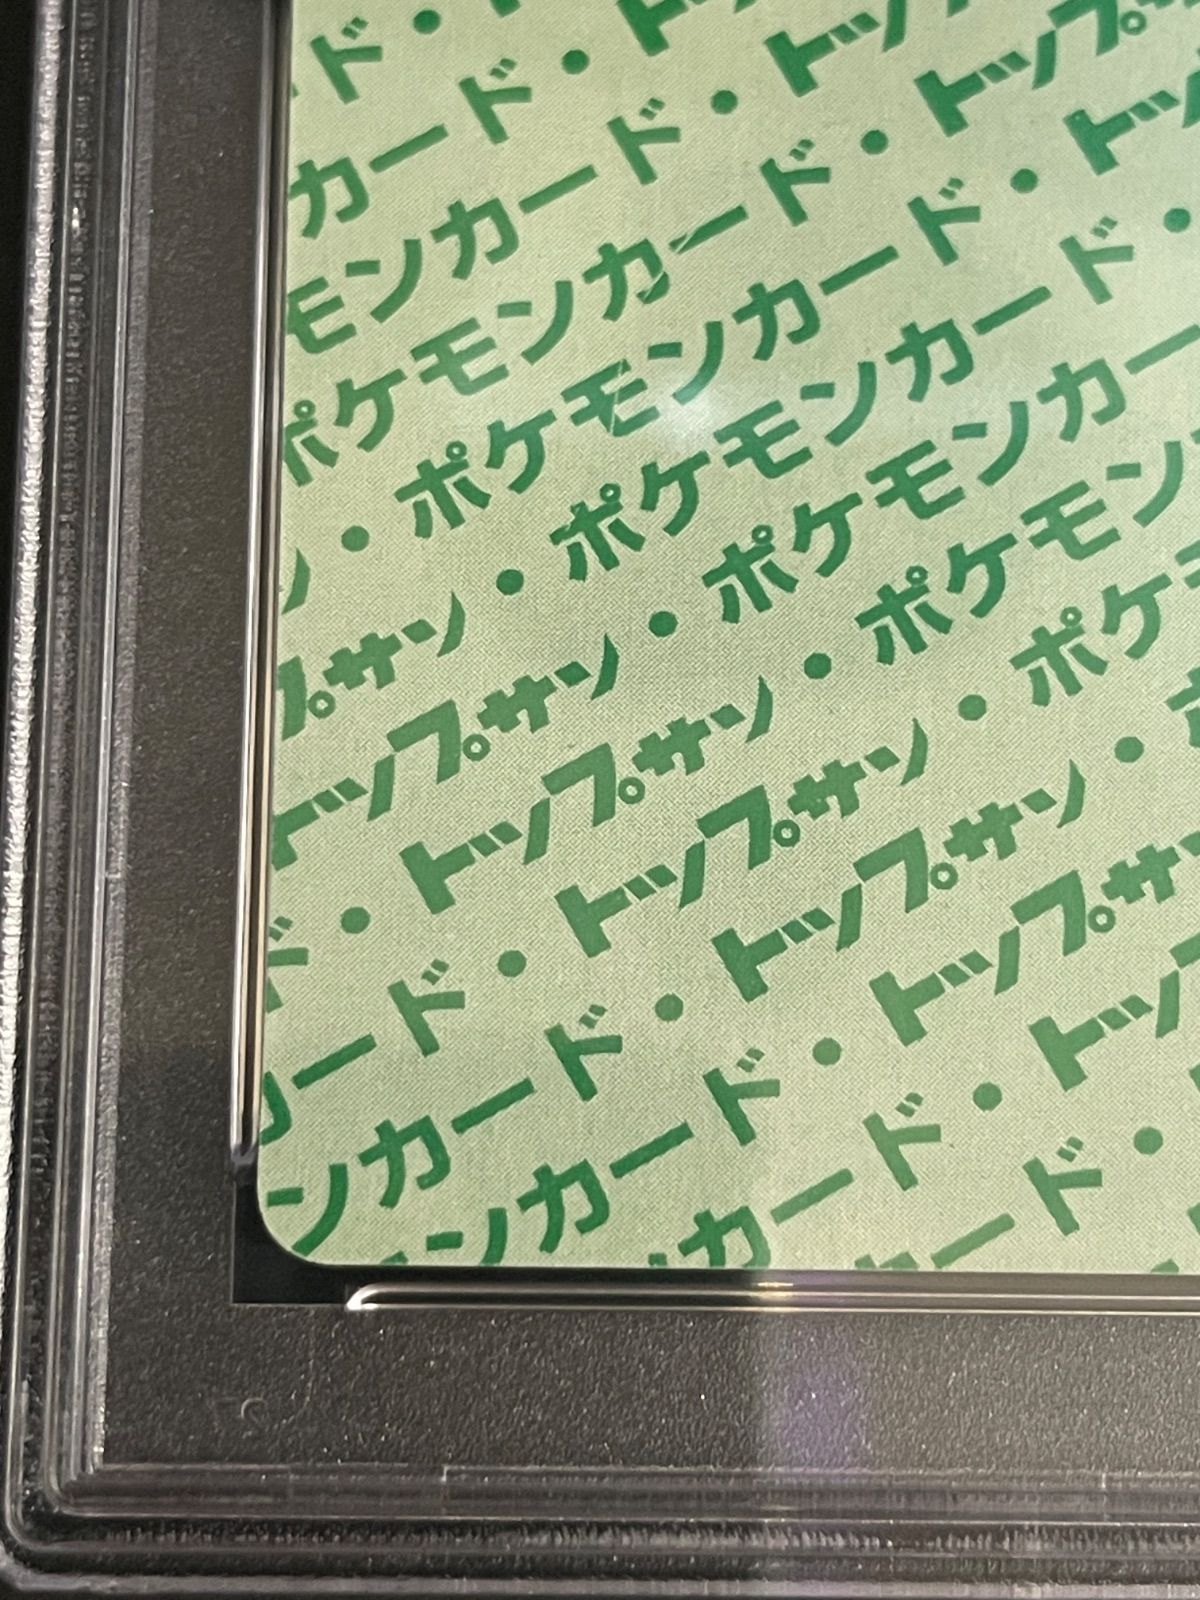 ド・
カード・ト
モンカード・トッ
ポケモンカード・トップ
・ポケモンカード・トッ
プサン・ポケモンカード・
トップサン・ポケモンカー
ド・トップサン・ポケモン
カード・トップサン・ポケ
ンカード・トップサン・ポ
ンカード・トップサ
カード・トップ
ード・